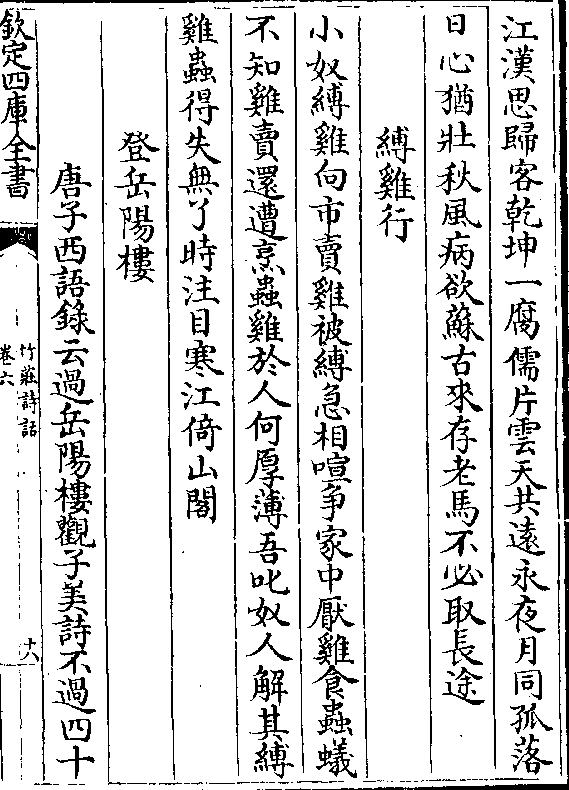 江漢思歸客乾坤一腐儒片雲天共遠永夜月同孤落
日心猶壯秋風病欲蘇古來存老馬不必取長途
縛雞行
小奴縛雞向市賣雞被縛急相喧爭家中厭雞食蟲蟻
不知雞賣還遭烹蟲雞於人何厚薄吾叱奴人解其縛
雞蟲得失無了時注目寒江倚山閣
登岳陽樓
唐子西語錄云過岳陽樓觀子美詩不過四十
欽定四庫全書
竹莊詩話
卷六
十八